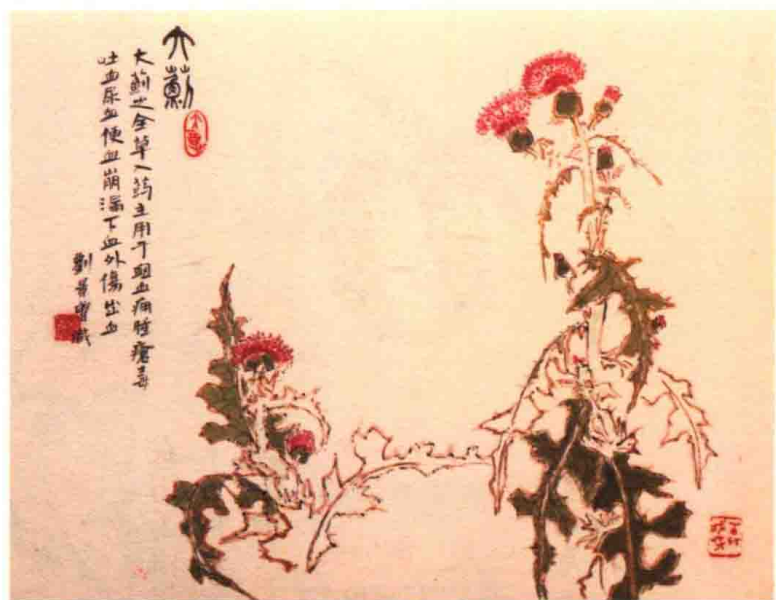 大薊
大薊之全草入药主用于衄血痈肿瘡毒
吐血尿血便血崩漏下血外傷出血
劉景曾識